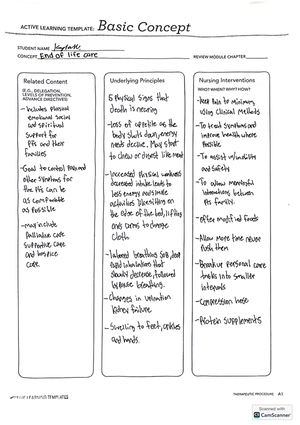 ACTIVE LEARNING TEMPLATE: Basic Concept
STUDENT NAME
CONCEPT End of life care
REVIEW MODULE CHAPTER
Related Content
(E.G., DELEGATION,
LEVELS OF PREVENTION,
ADVANCE DIRECTIVES)
- Includes Physical
emotional social
and spiritual
support for
pts and their
families
- Goal to control pain and
other symptoms for
the pts can be
as comfortable
as possible
- may include
palliative care
supportive care
and hospice
care
Underlying Principles
5 Physical signs that
death is nearing
- Loss of appetite as the
body shuts down, energy
needs decline. May start
to chew or digest like meat
- Increased Physical weakness
decreased intake leads to
less energy and make
activities like sitting on
the edge of the bed, lifting
and to change
cloth
- Labored breathing
rapid inhalations that
slowly decrease, followed
by breathing.
- Changes in urination
kidney failure
- Swelling to feet, ankles
and hands.
Nursing Interventions
WHO? WHEN? WHY? HOW?
- Keep Pain to minimum,
using clinical methods
- To treat symptoms and
improve health where
possible
- To assist w/ mobility
and safety
- To allow meaningful
interactions between
pts family.
- offer modified foods
- Allow more time never
push them
- Break up personal care
tasks into smaller
intervals
- Compression hose
- Protein supplements
ACTIVE LEARNING TEMPLATES
THERAPEUTIC PROCEDURE A1
CamScanner